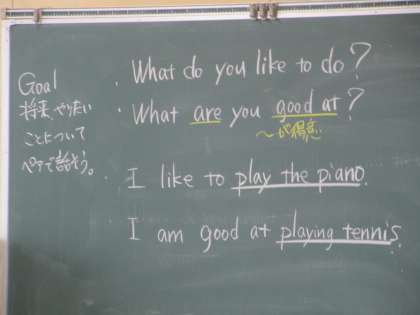 Goal
将来、やりたい
ことについて
ペアで話そう。
・What do you like to do?
・What are you good at?
〜が得意
・I like to play the piano.
I am good at playing tennis.